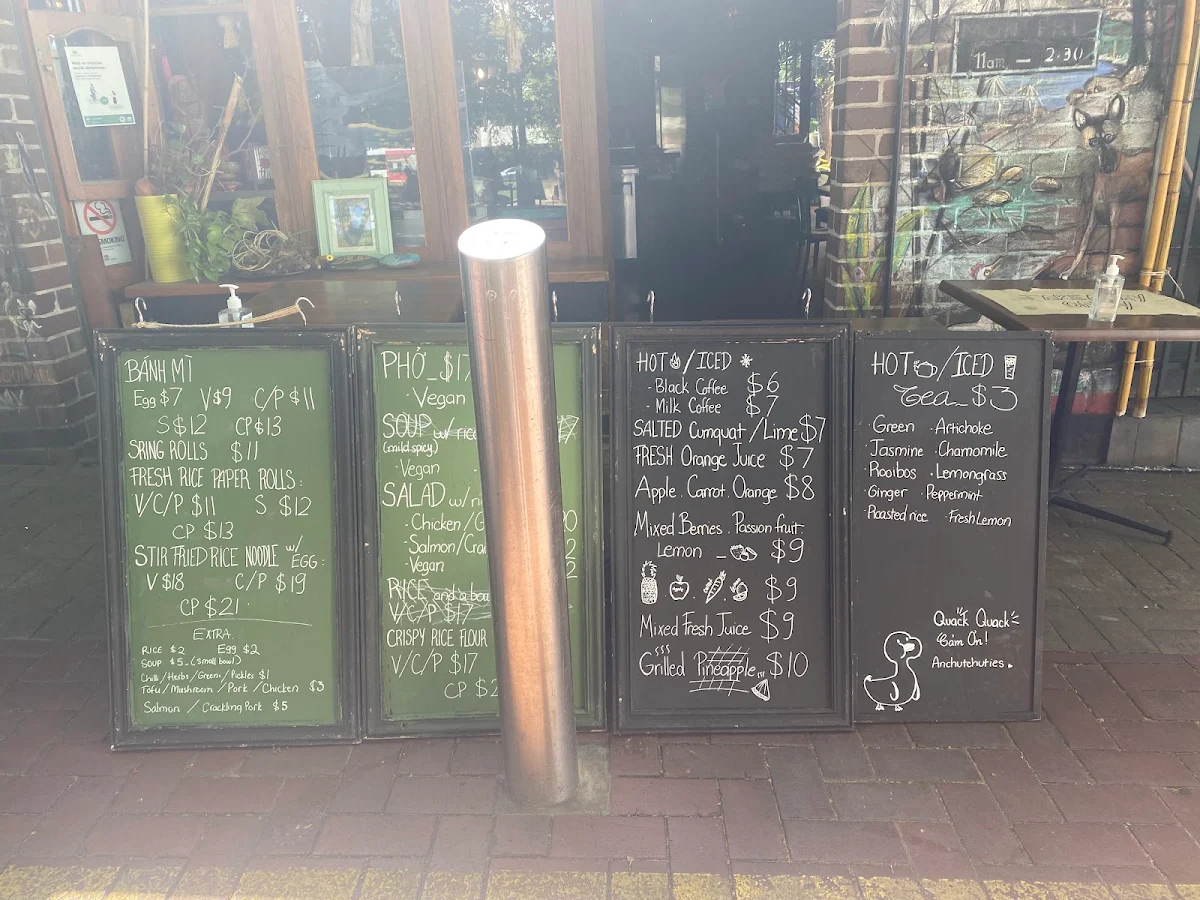 11am - 2:30
SMOKING
BÁNH MÌ
Egg $7 V $9 C/P $11
S $12 CP $13
SRING ROLLS $11
FRESH RICE PAPER ROLLS:
V/C/P $11 S $12
CP $13
STIR FRIED RICE NOODLE w/ EGG:
V $18 C/P $19
CP $21
EXTRA:
RICE $2 EGG $2
SOUP $5-(small bowl)
Chilli/Herbs/Greens/Pickles $1
Tofu/Mushroom/Pork/Chicken $3
Salmon/Crackling Pork $5
PHỞ_$17
· Vegan
SOUP w/ rice
(mild spicy)
· Vegan
SALAD w/
· Chicken/
· Salmon/
· Vegan
RICE and a
V/C/P $17
CRISPY RICE FLOUR
V/C/P $17
CP
HOT/ICED
- Black Coffee $6
- Milk Coffee $7
SALTED Cumquat/Lime $7
FRESH Orange Juice $7
Apple. Carrot. Orange $8
Mixed Berries. Passion fruit.
Lemon _ $9
$9
Mixed Fresh Juice $9
Grilled Pineapple $10
HOT/ICED
Tea_$3
· Green · Artichoke
Jasmine · Chamomile
· Rooibos · Lemongrass
· Ginger · Peppermint
· Roasted rice · Fresh Lemon
Quack Quack
Cảm Ơn!
Anchutchuties.